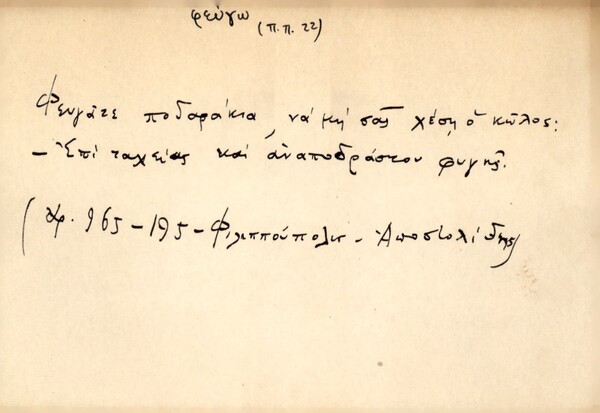 φεύγω
(π.π. 22)
Φευγᾶτε ποδαράκια, νά μή σᾶς χέση ὁ κῶλος:
– Ἐπί ταχείας καί ἀναποδράστου φυγῆς.
(Ἀρ. 965 – 195 – Φιλιππούπολις – Ἀποστολίδης)